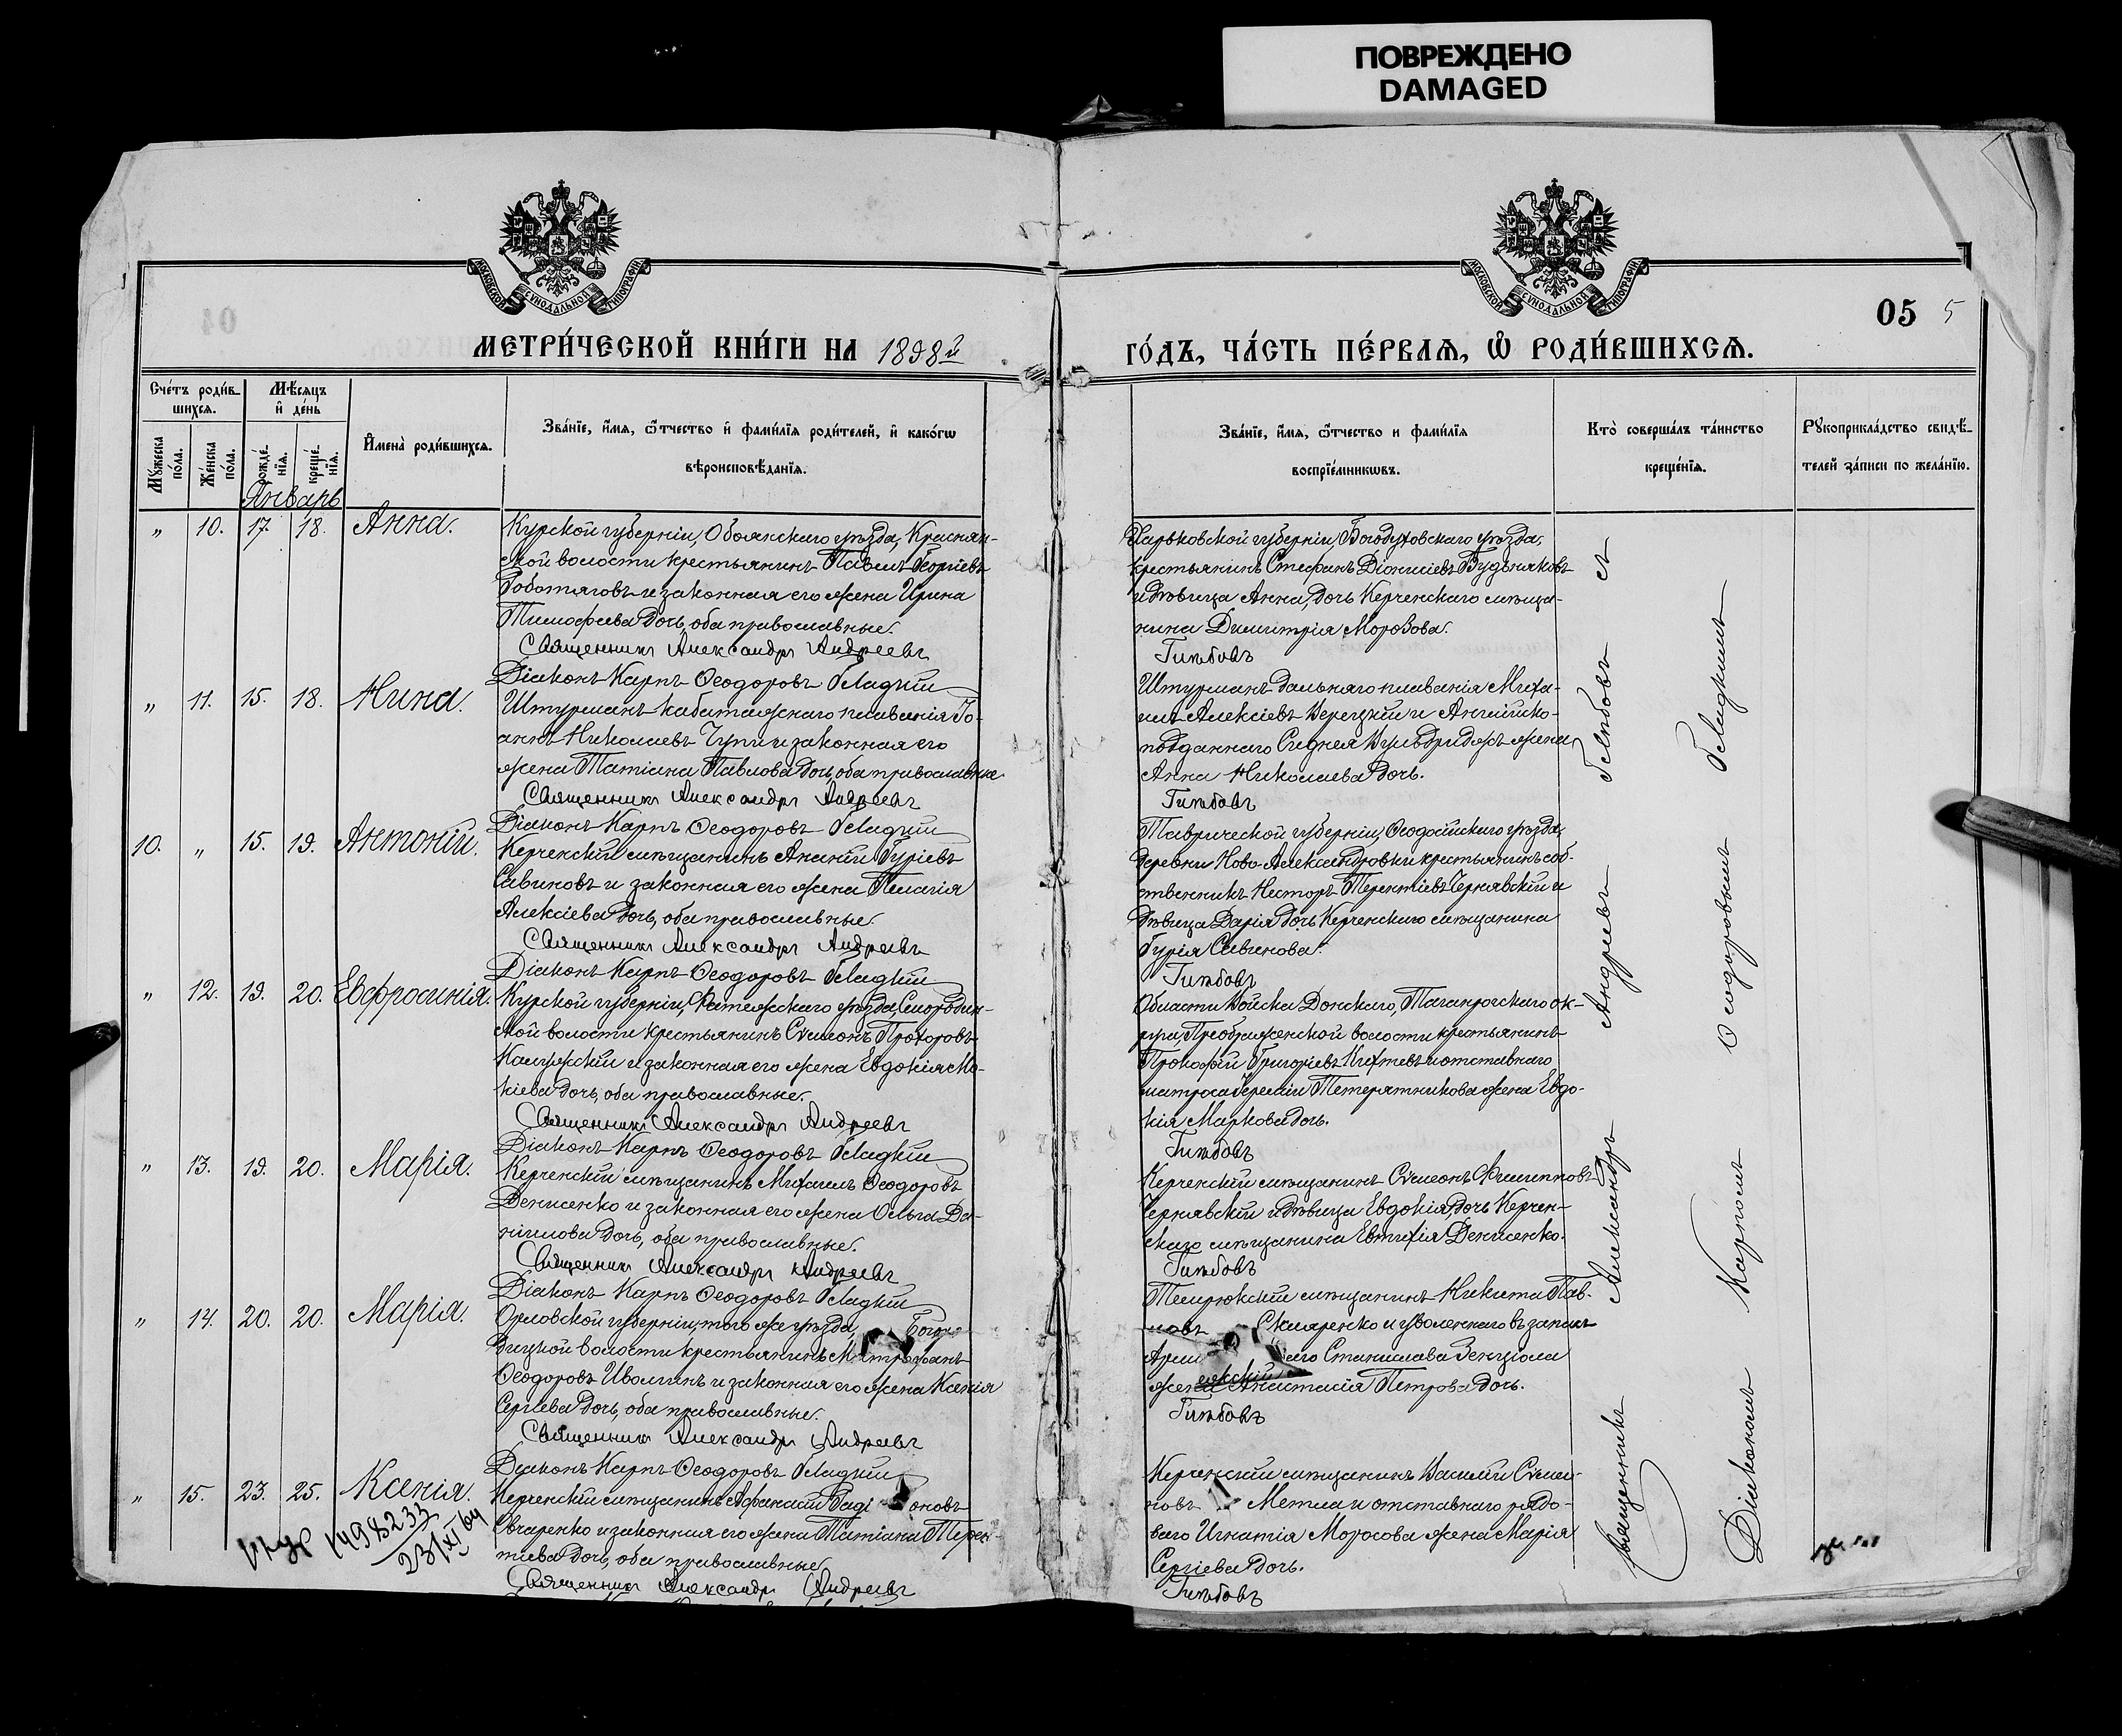 ПОВРЕЖДЕНО
DAMAGED
МОСКОВСКОЙ СѴНОДАЛЬНОЙ ТИПОГРАФІИ
МОСКОВСКОЙ СѴНОДАЛЬНОЙ ТИПОГРАФІИ
05 5
МЕТРИ́ЧЕСКОЙ КНИ́ГИ НА 1898й
ГО́ДЪ, ЧА́СТЬ ПЕ́РВАЯ, Ѿ РОДИ́ВШИХСЯ.
Сче́тъ роди́вшихся.
Мѣ́сяцъ и де́нь
Му́жеска по́ла.
Же́нска по́ла.
рожде́нія.
креще́нія.
Имена̀ роди́вшихся.
Зва́ніе, и́мя, ѻ́тчество и фами́лія роди́телей, и како́гѡ
вѣроисповѣ́данія.
Зва́ніе, и́мя, ѻ́тчество и фами́лія
воспріе́мникѡвъ.
Кто̀ соверша́лъ та́инство
креще́нія.
Рукоприкла́дство свидѣ́-
телей за́писи по жела́нію.
Январь
„ 10. 17. 18. Анна.
Курской губерніи, Обоянскаго уѣзда, Краснян-
ской волости крестьянинъ Павелъ Георгіевъ
Роботяговъ и законная его жена Ирина
Тимофеева дочь, оба православные.
Священникъ Александръ Андреевъ
Діаконъ Карпъ Ѳеодоровъ Гладкій
Харьковской губерніи, Богодуховскаго уѣзда,
крестьянинъ Стефанъ Діонисіевъ Будьняковъ
и дѣвица Анна, дочь Керченскаго мѣща-
нина Димитрія Морозова.
Глѣбовъ
„ 11. 15. 18. Нина.
Штурманъ каботажнаго плаванія Іо-
аннъ Николаевъ Чупи и законная его
жена Татіана Павлова дочь, оба православные
Священникъ Александръ Андреевъ
Діаконъ Карпъ Ѳеодоровъ Гладкій
Штурманъ дальняго плаванія Миха-
илъ Алексіевъ Верецкій и Англійско-
подданнаго Сиднея жена
Анна Николаева дочь.
Глѣбовъ
10. „ 15. 19. Антоній.
Керченскій мѣщанинъ Ананій Гуріевъ
Савиновъ и законная его жена Пелагія
Алексіева дочь, оба православные.
Священникъ Александръ Андреевъ
Діаконъ Карпъ Ѳеодоровъ Гладкій
Таврической губерніи, Ѳеодосійскаго уѣзда,
деревни Ново-Александровки крестьянинъ соб-
ственникъ Несторъ Терентіевъ Чернявскій и
дѣвица Дарія дочь Керченскаго мѣщанина
Гурія Савинова.
Глѣбовъ
„ 12. 19. 20. Евфросинія.
Курской губерніи, Фатежскаго уѣзда, Смородин-
ской волости крестьянинъ Сѵмеонъ Прохоровъ
Калужскій и законная его жена Евдокія Мо-
кіева дочь, оба православные.
Священникъ Александръ Андреевъ
Діаконъ Карпъ Ѳеодоровъ Гладкій
Области Войска Донскаго, Таганрогскаго ок-
руга, Преображенской волости крестьянинъ
Прокофій Григоріевъ и отставнаго
матроса Іереміи Тетерятникова жена Евдо-
кія Маркова дочь.
Глѣбовъ
„ 13. 19. 20. Марія.
Керченскій мѣщанинъ Михаилъ Ѳеодоровъ
Денисенко и законная его жена Ольга Да-
ніилова дочь, оба православные.
Священникъ Александръ Андреевъ
Діаконъ Карпъ Ѳеодоровъ Гладкій
Керченскій мѣщанинъ Сѵмеонъ Филипповъ
Чернявскій и дѣвица Евдокія дочь Керчен-
скаго мѣщанина Евтихія Денисенко.
Глѣбовъ
„ 14. 20. 20. Марія.
Орловской губерніи, того же уѣзда, Бого-
дицкой волости крестьянинъ Митрофанъ
Ѳеодоровъ Иволгинъ и законная его жена Ксенія
Сергіева дочь, оба православные.
Священникъ Александръ Андреевъ
Діаконъ Карпъ Ѳеодоровъ Гладкій
Темрюкскій мѣщанинъ Никита Пав-
ловъ Скляренко и уволеннаго въ запасъ
Арміи Станислава
жена Анастасія Петрова дочь.
Глѣбовъ
„ 15. 23. 25. Ксенія.
Керченскій мѣщанинъ Афанасій оновъ
Овчаренко и законная его жена Татіана Терен-
тіева дочь, оба православные.
Священникъ Александръ Андреевъ
Керченскій мѣщанинъ Василій Сѵмео-
новъ Метла и отставнаго рядо-
ваго Игнатія Моросова жена Марія
Сергіева дочь.
Глѣбовъ
Священникъ Александръ Андреевъ Глѣбовъ с
Діакономъ Карпомъ Ѳеодоровымъ Гладкимъ
1498233
23/XI 64